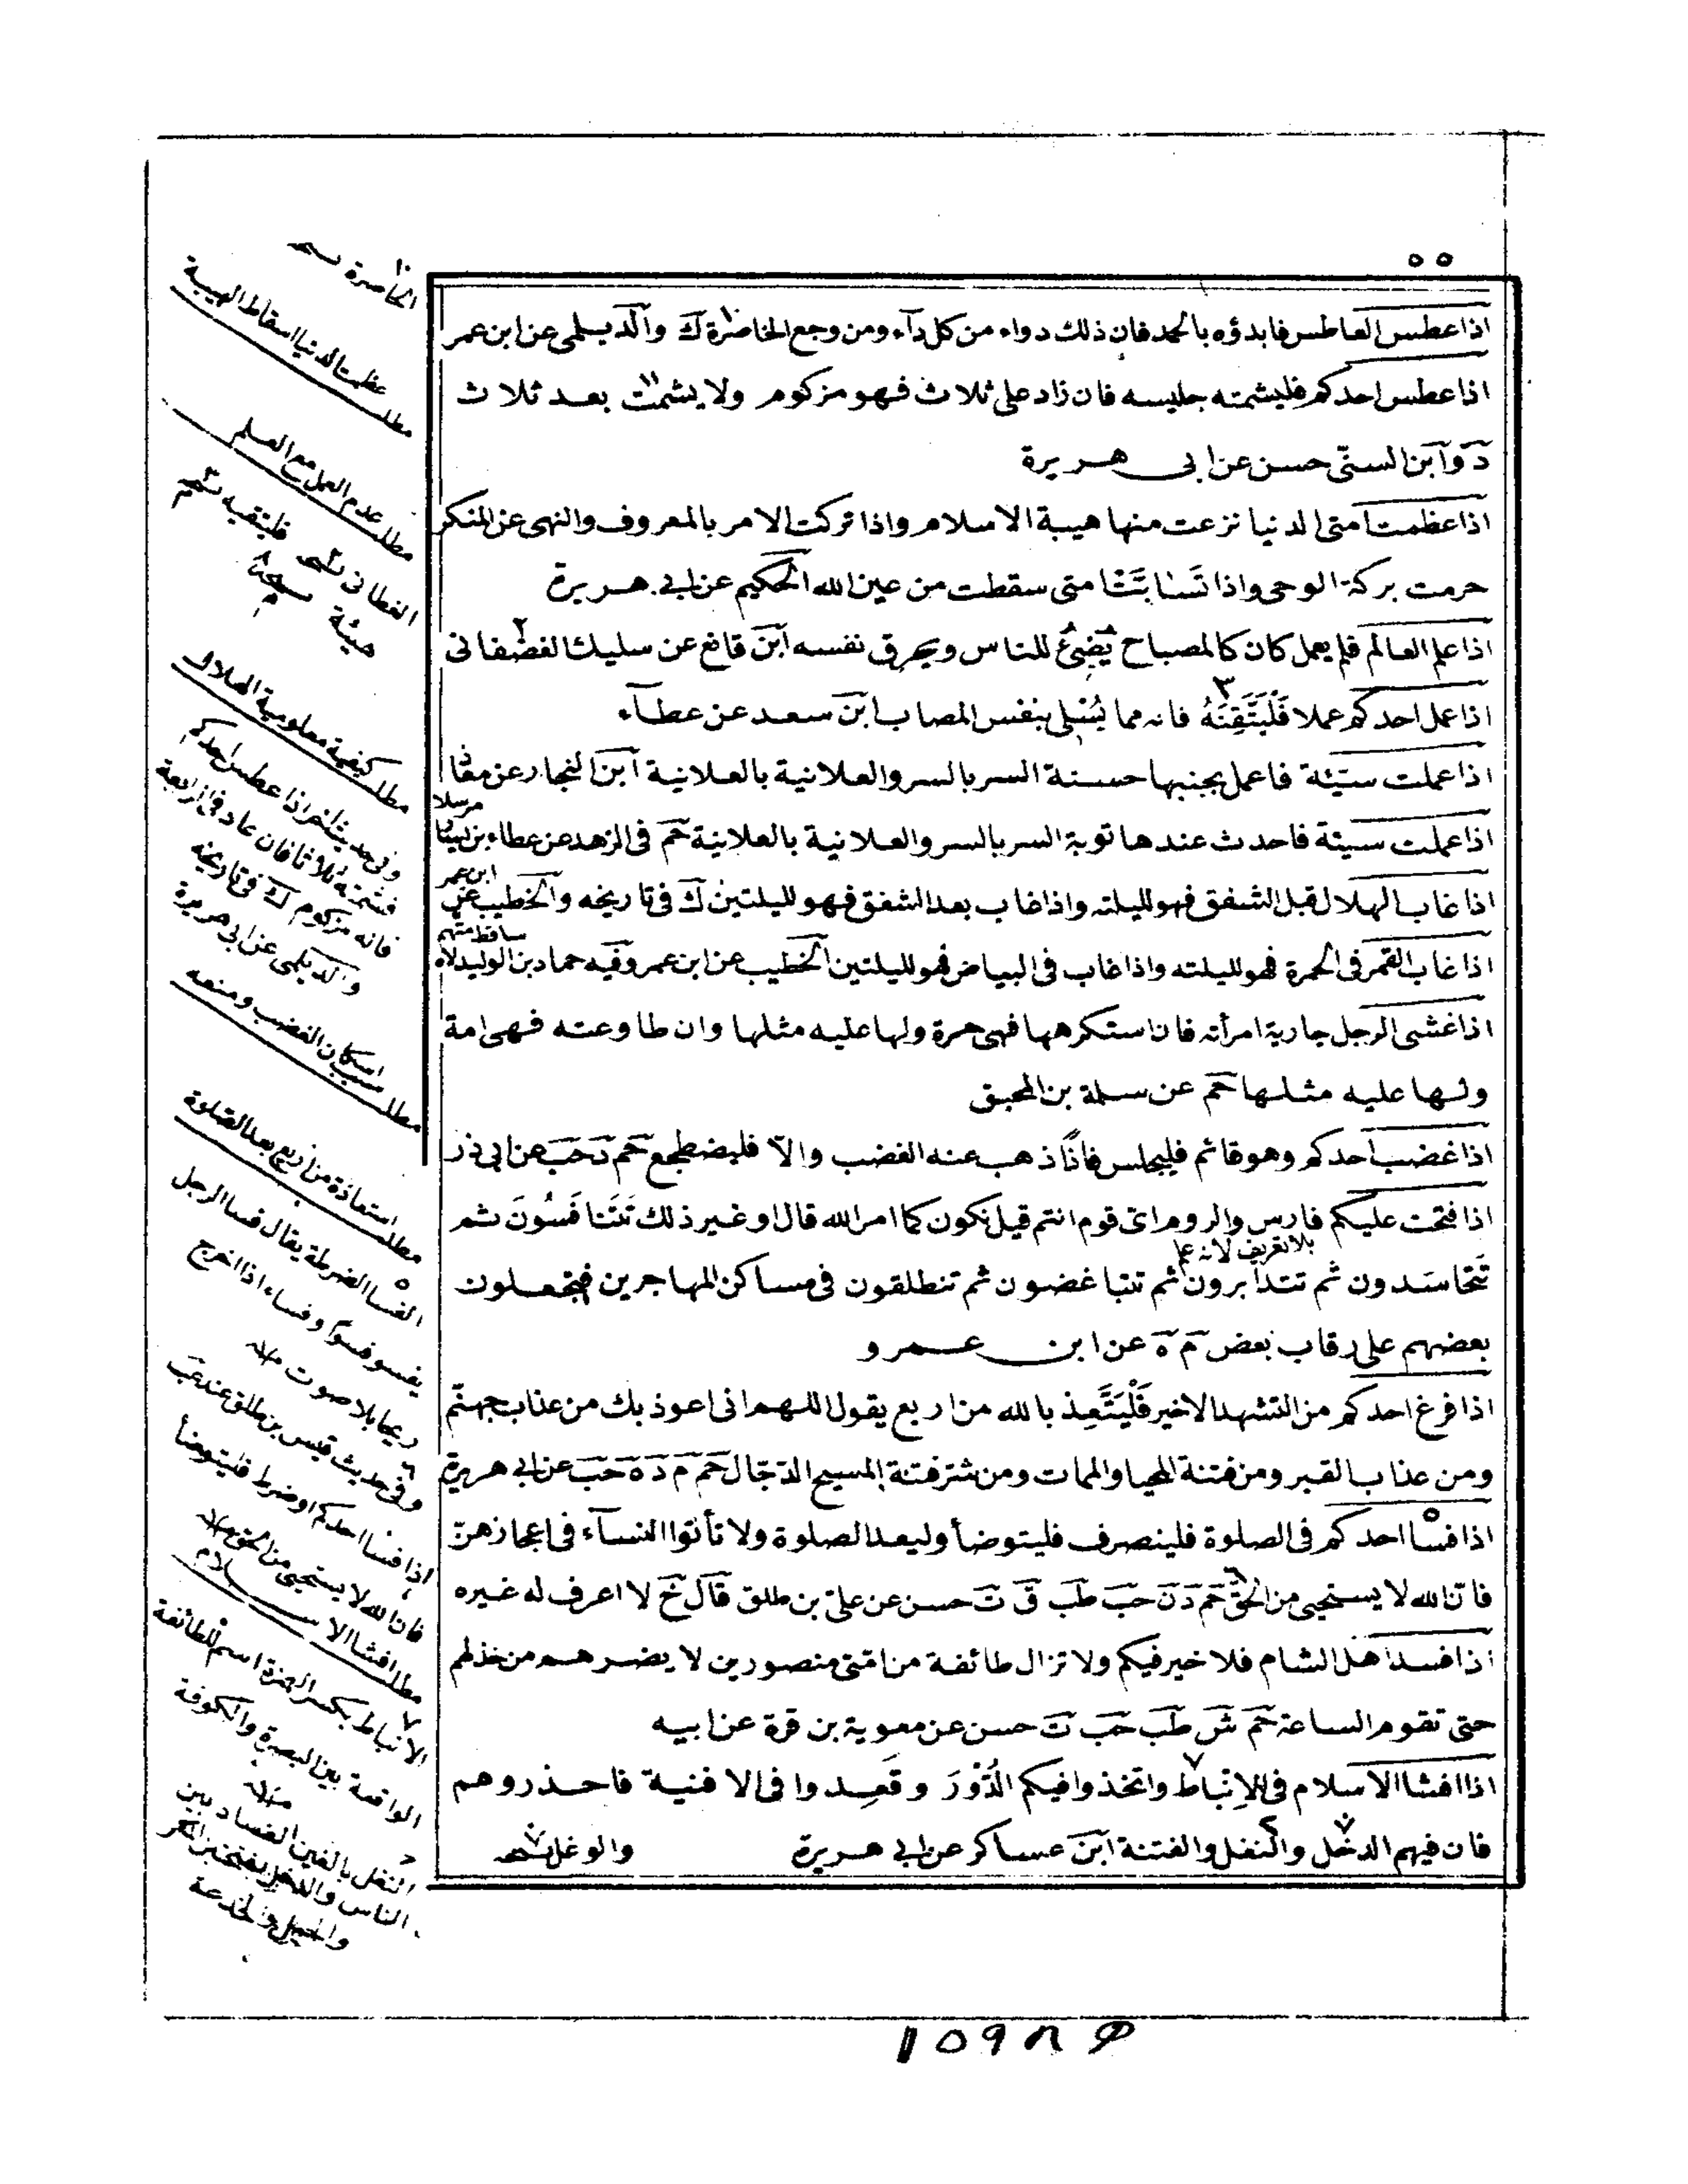 ٥٥
اذا عطس العاطس فابدؤه بالحمد فان ذلك دواء من كل دآء ومن وجع الخاصرة ك والديلمى عن ابن عمر
اذا عطس احدكم فليشمته جليسه فان زاد على ثلاث فهو مزكوم ولا يشمت بعد ثلاث
د وابن السنى حسن عن ابى هريرة
اذا عظمت امتى الدنيا نزعت منها هيبة الاسلام واذا تركت الامر بالمعروف والنهى عن المنكر
حرمت بركة الوحى واذا تسابت امتى سقطت من عين الله الحكيم عن ابى هريرة
اذا علم العالم فلم يعمل كان كالمصباح يضئ للناس ويحرق نفسه ابن قانع عن سليك الغضفانى
اذا عمل احدكم عملا فَلْيَتَّقِنَهُ فانه مما يُسَلى بنفس المصاب ابن سعد عن عطآء
اذا عملت سيّئة فاعمل بجنبها حسنة السر بالسر والعلانية بالعلانية ابن النجار عن معاذ
مرسلا
اذا عملت سيئة فاحدث عندها توبة السر بالسر والعلانية بالعلانية حم فى الزهد عن عطاء بن يسار
ابن عمر
اذا غاب الهلال قبل الشفق فهو لليلته واذا غاب بعد الشفق فهو لليلتين ك فى تاريخه والخطيب عن
ساقط متهم
اذا غاب القمر فى الحمرة فهو لليلته واذا غاب فى البياض فهو لليلتين الخطيب عن ابن عمر وفيه حماد بن الوليد لاه
اذا غشى الرجل جارية امرأته فان استكرهها فهى حرة ولها عليه مثلها وان طاوعته فهى امة
ولها عليه مثلها حم عن سلمة بن المحبق
اذا غضب احدكم وهو قائم فليجلس فاذا ذهب عنه الغضب والّا فليضطجع حم د حب عن ابى ذر
اذا فتحت عليكم فارس والروم اىّ قوم انتم قيل نكون كما امر الله قال او غير ذلك تَتَنَافَسُونَ ثم
بلا تعريف لانه علم
تتحاسَدون ثم تتدابرون ثم تتباغضون ثم تنطلقون فى مساكن المهاجرين فتجعلون
بعضهم على رقاب بعض م ه عن ابن عمرو
اذا فرغ احدكم من التشهد الاخير فَلْيَتَعَّذ بالله من اربع يقول اللهم انى اعوذ بك من عذاب جهنّم
ومن عذاب القبر ومن فتنة المحيا والممات ومن شر فتنة المسيح الدّجّال حم م د ه حب عن ابى هريرة
اذا فسا احدكم فى الصلوة فلينصرف فليتوضأ وليعد الصلوة ولا تأتوا النسآء فى اعجازهنّ
فانّ الله لا يستحيى من الحق حم د ن حب طب ق ت حسن عن علىّ بن طلق قال خ لا اعرف له غيره
اذا فسد اهل الشام فلا خير فيكم ولا تزال طائفة من امّتى منصورين لا يضرهم من خذلهم
حتى تقوم الساعة حم ش طب حب ت حسن عن معوية بن قرة عن ابيه
اذا افشا الاسلام فى الانباط واتخذوا فيكم الدُّوْرَ وقَعِدوا فى الافنية فاحذروهم
فان فيهم الدخل والنغل والفتنة ابن عساكر عن ابى هريرة والوغل نسخه
الخاصرة نسخه
مطلب عظمت الدنيا اسقاط الهيبة
مطلب عدم العمل مع العلم
الغطفانى نسخه فليتقيه نسخه
هيئة
مطلب كيفية معلومية الهلال
وفى حديث آخر اذا عطس احدكم
فشمته ثلاثا فان عاد فى الرابعة
فانه مزكوم ك فى تاريخه
والديلمى عن ابى هريرة
مطلب اسكان الغضب ومنعه
مطلب استعاذة من اربع بعد الصلوة
الفسا الضرطة يقال فسا الرجل
يفسو فسوا وفساء اذا اخرج
ريحا بلا صوت منه
وفى حديث قيس بن طلق عند عب
اذا فسا احدكم او ضرط فليتوضأ
فان الله لا يستحيى من الحق منه
مطلب افشا الاسلام
الانباط بكسر الهمزة اسم للطائفة
الواقعة بين البصرة والكوفة
منه
النغل بالغين الفساد بين
الناس والدخل بفتحتين المكر
والحيل والخدعة